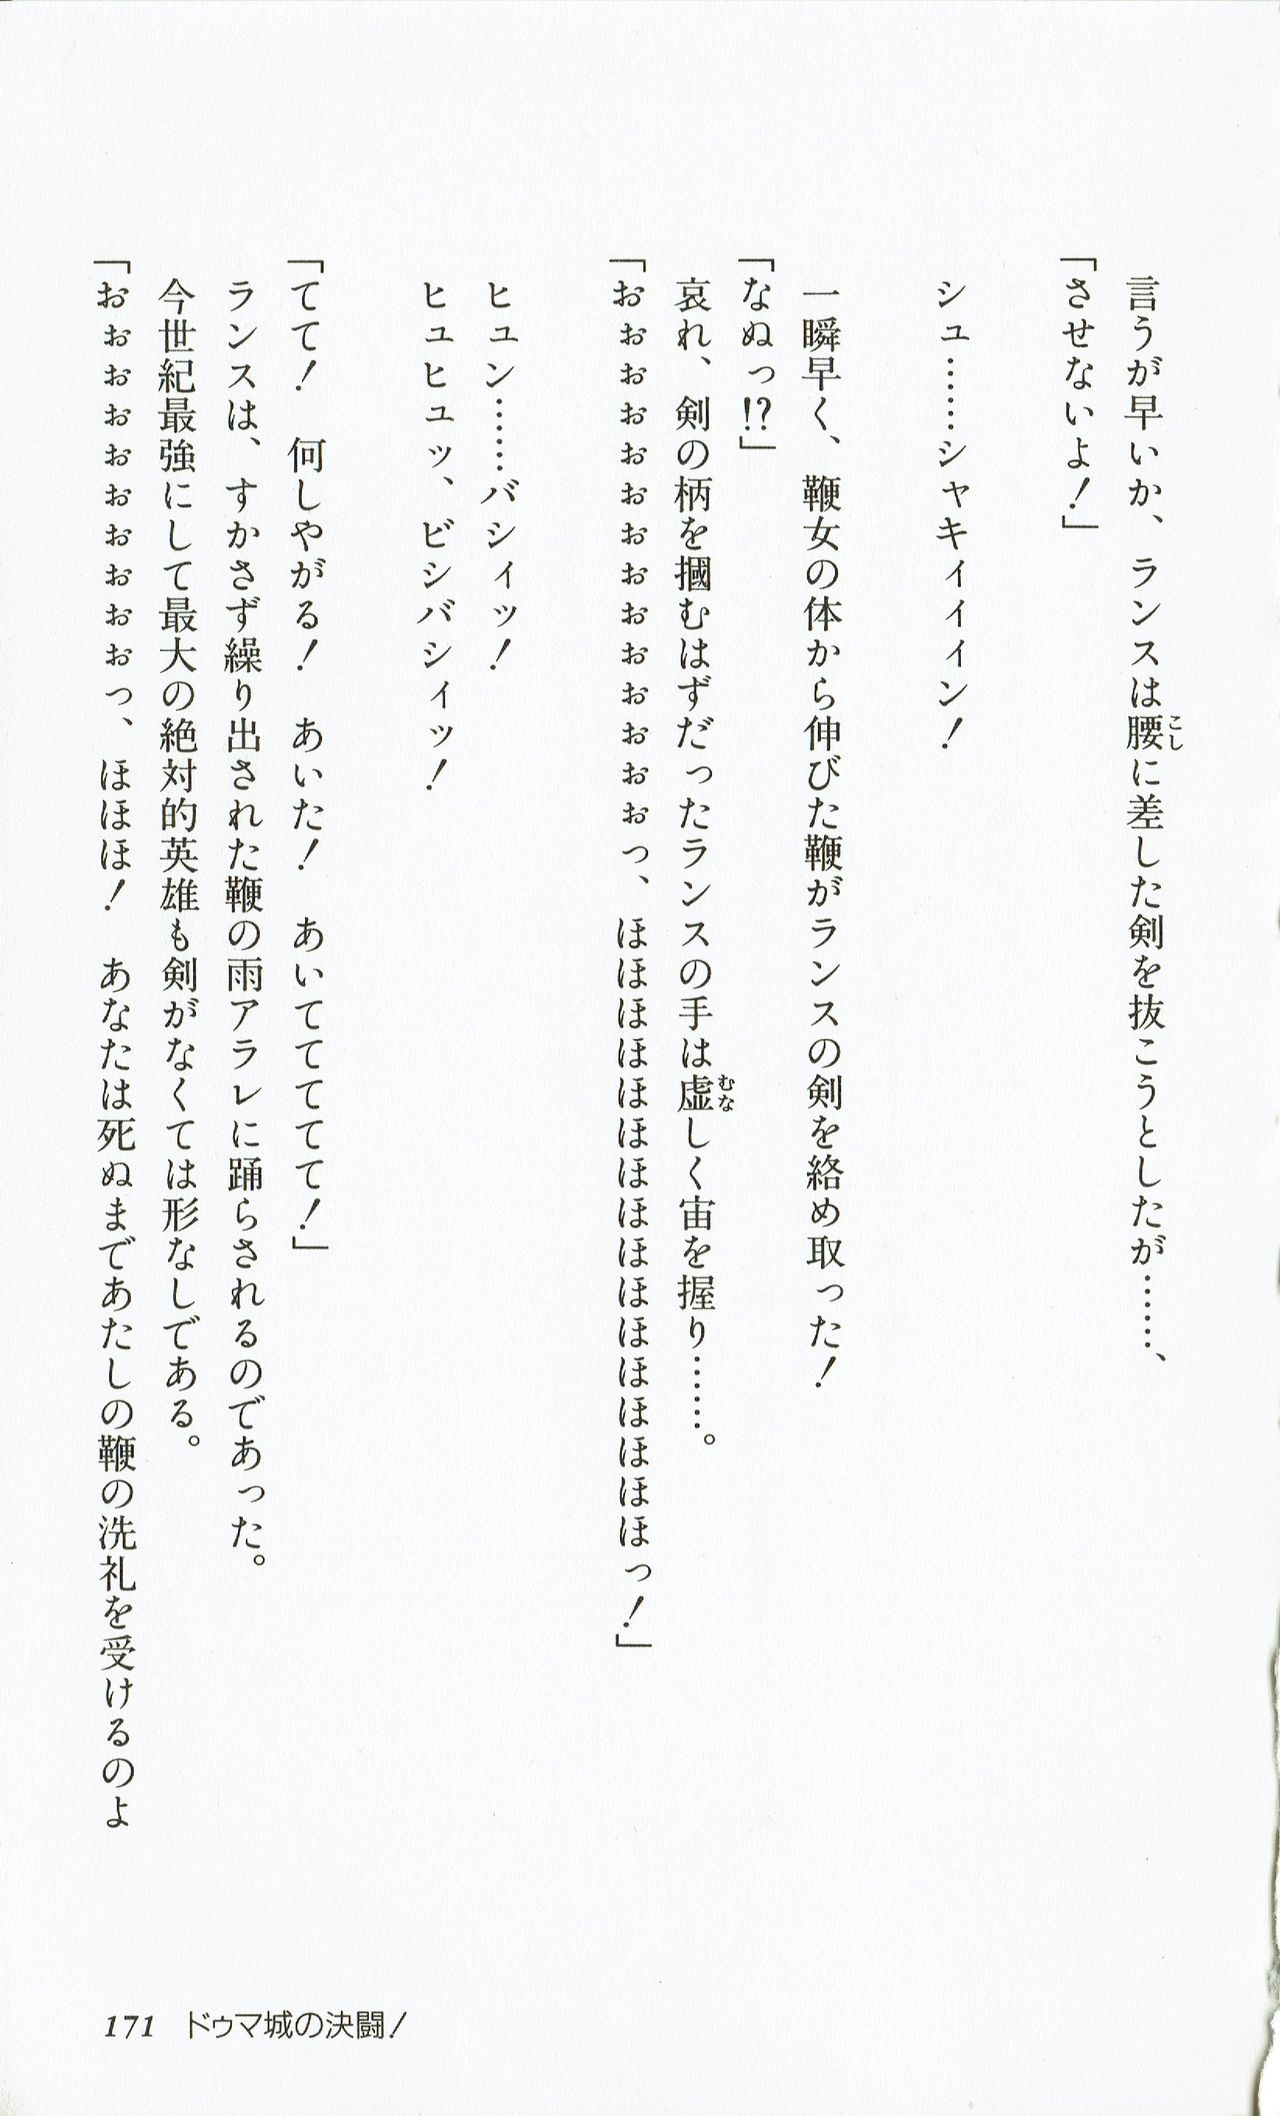 言うが早いか、ランスは腰こしに差した剣を抜こうとしたが……、
「させないよ！」
シュ……シャキィィィン！
一瞬早く、鞭女の体から伸びた鞭がランスの剣を絡め取った！
「なぬっ!?」
哀れ、剣の柄を摑むはずだったランスの手は虚むなしく宙を握り……。
「おぉぉぉぉぉぉぉぉぉぉぉぉぉっ、ほほほほほほほほほほほほほほほほっ！」
ヒュン……バシィッ！
ヒュヒュッ、ビシバシィッ！
「てて！　何しやがる！　あいた！　あいててててて！」
ランスは、すかさず繰り出された鞭の雨アラレに踊らされるのであった。
今世紀最強にして最大の絶対的英雄も剣がなくては形なしである。
「おぉぉぉぉぉぉぉぉぉっ、ほほほ！　あなたは死ぬまであたしの鞭の洗礼を受けるのよ
171　ドゥマ城の決闘！